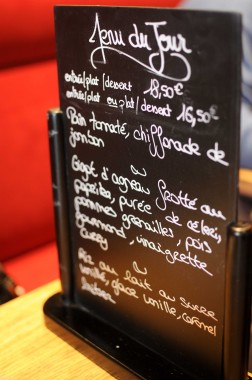 Menu du Jour
entrée/plat/dessert 18,50€
entrée/plat ou plat/dessert 16,50€
Pain tomaté, chiffonade de
jambon
ou
Gigot d'agneau frotté au
paprika, purée de céleri,
pommes grenailles, pois
gourmand, vinaigrette
curry
ou
Riz au lait au sucre
vanillé, glace vanille, caramel